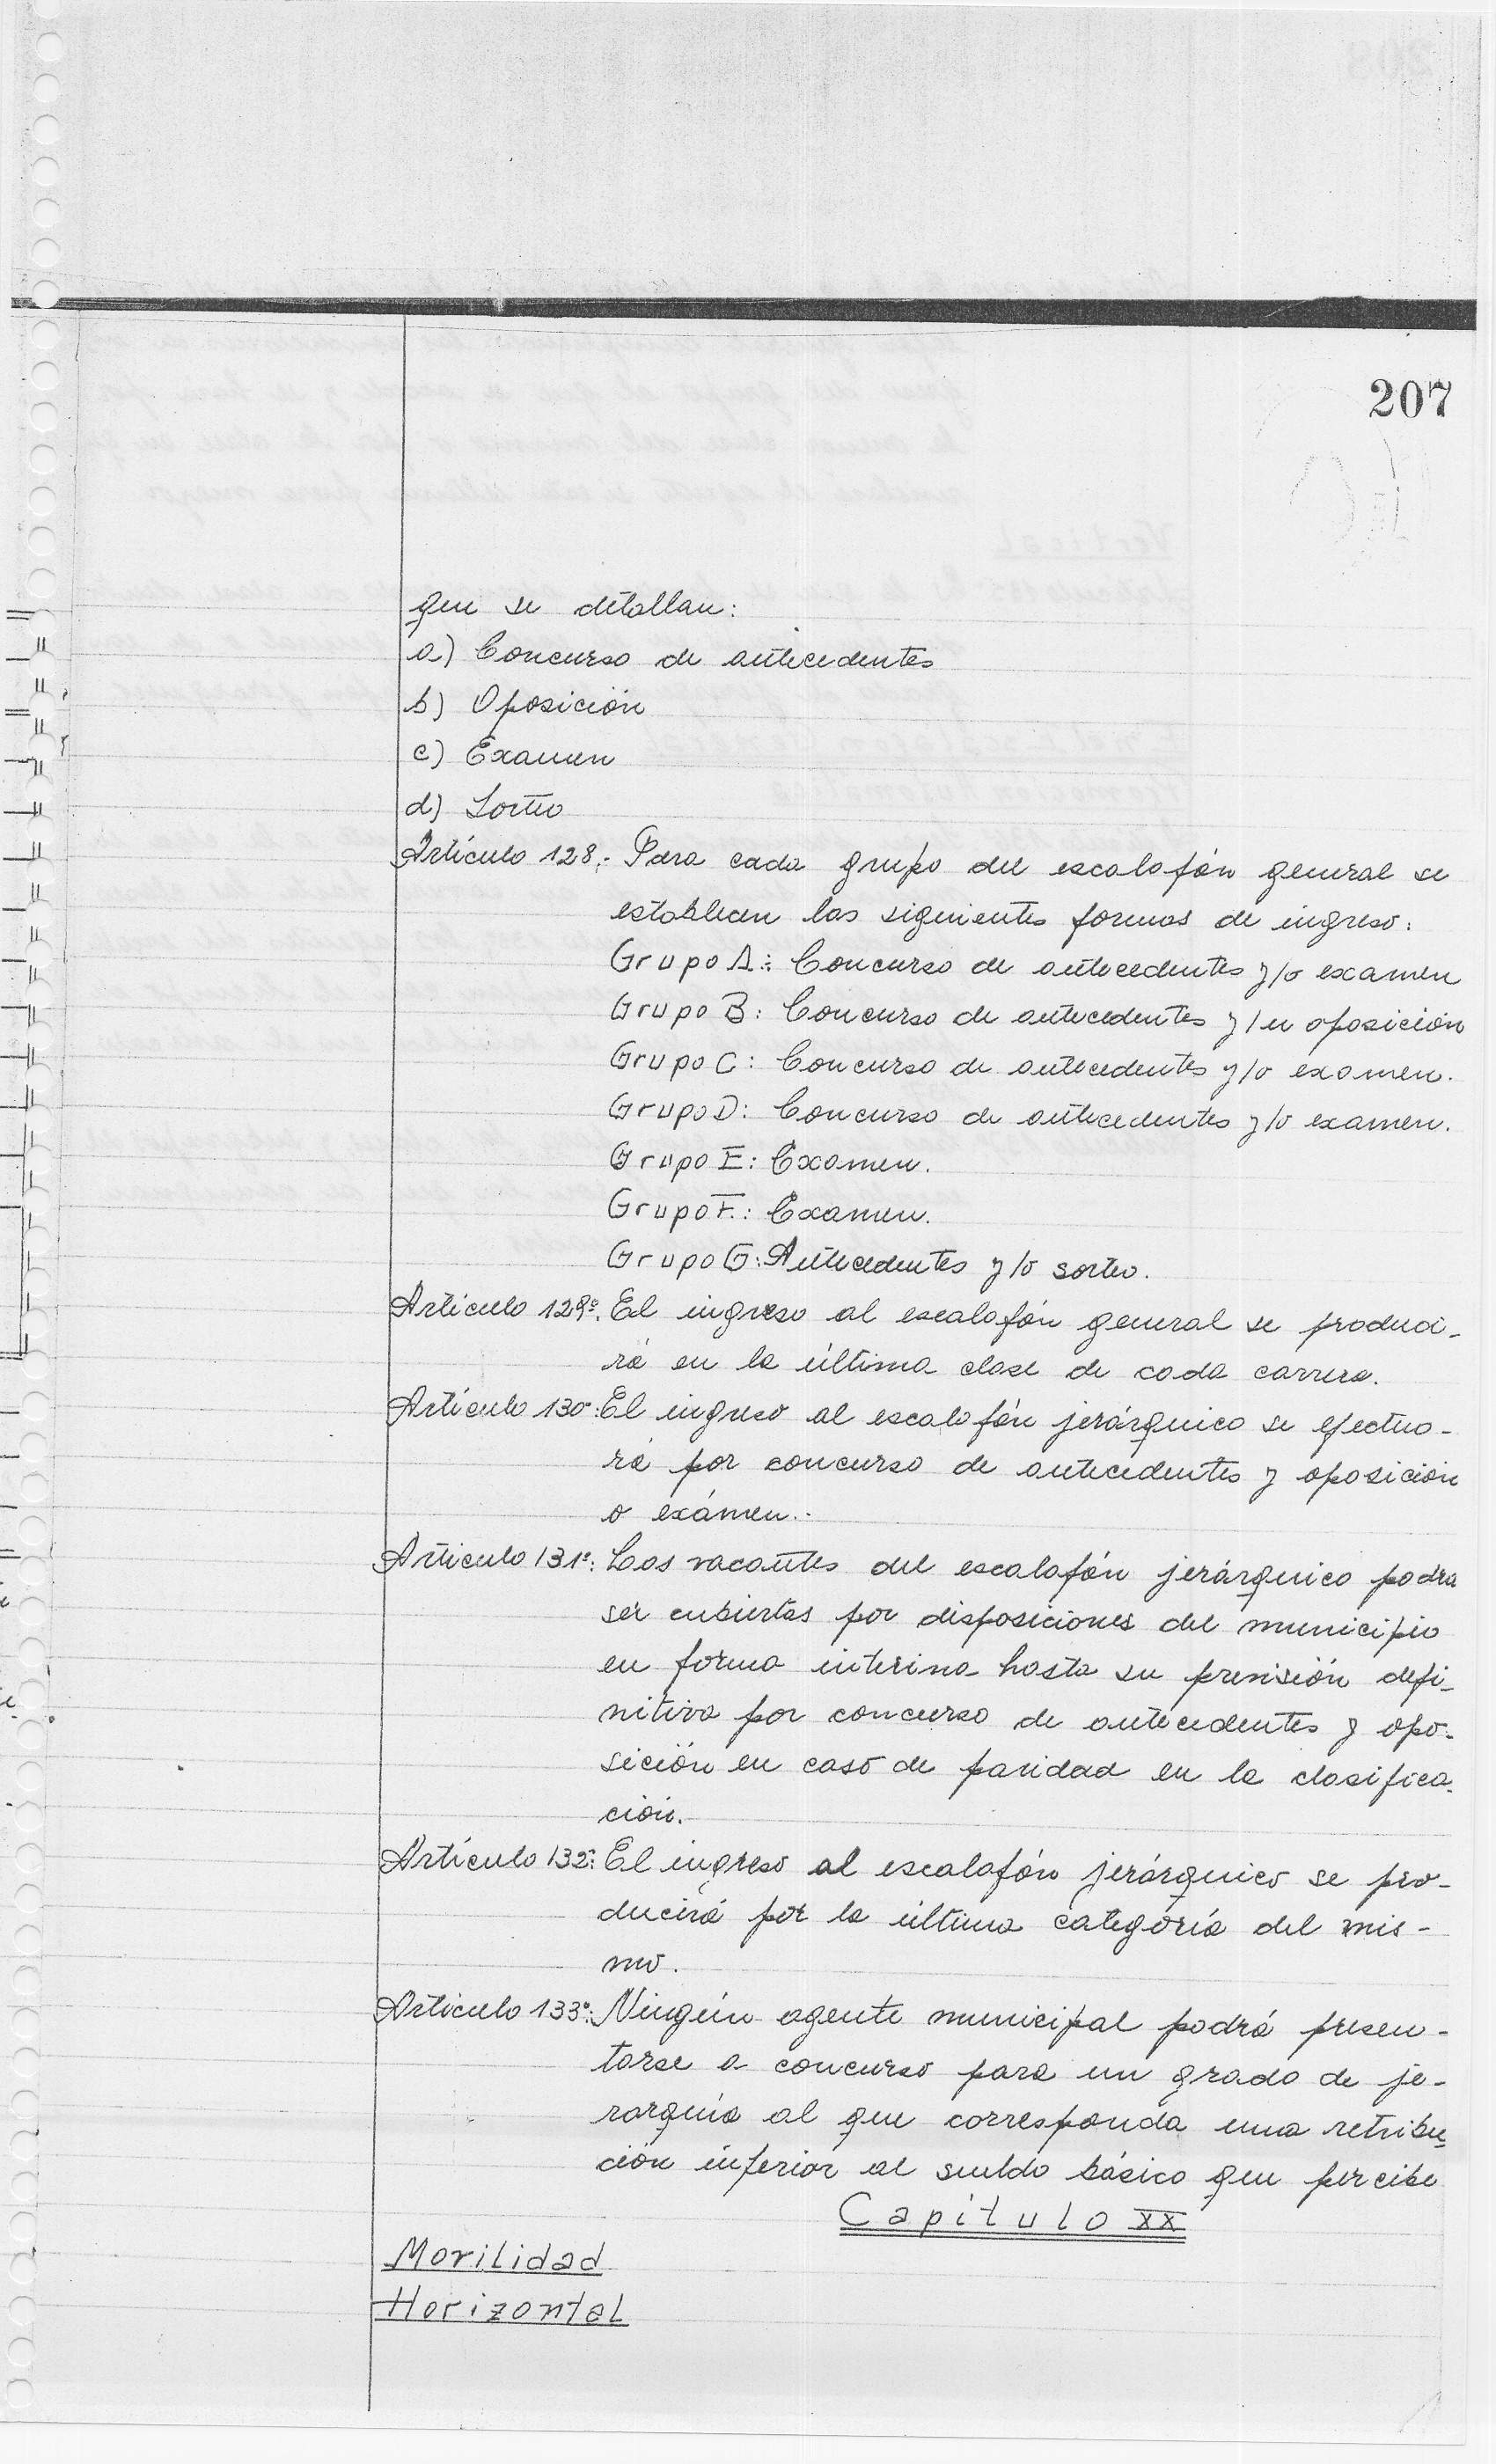 207
que se detallan:
a) Concurso de antecedentes
b) Oposición
c) Examen
d) Sorteo
Artículo 128:- Para cada grupo del escalafón general se
establecen las siguientes formas de ingreso:
Grupo A: Concurso de antecedentes y/o examen
Grupo B: Concurso de antecedentes y/u oposición
Grupo C: Concurso de antecedentes y/o examen.
Grupo D: Concurso de antecedentes y/o examen.
Grupo E: Examen.
Grupo F.: Examen.
Grupo G: Antecedentes y/o sorteo.
Artículo 129º: El ingreso al escalafón general se produci-
rá en la última clase de cada carrera.
Artículo 130º: El ingreso al escalafón jerárquico se efectua-
rá por concurso de antecedentes y oposición
o exámen.-
Artículo 131º: Las vacantes del escalafón jerárquico podrá
ser cubiertas por disposiciones del municipio
en forma interina hasta su previsión defi-
nitiva por concurso de antecedentes y opo-
sición en caso de paridad en la clasifica-
ción.-
Artículo 132º: El ingreso al escalafón jerárquico se pro-
ducirá por la última categoría del mis-
mo.
Artículo 133º: Ningún agente municipal podrá presen-
tarse a concurso para un grado de je-
rarquía al que corresponda una retribu-
ción inferior al sueldo básico que percibe
Capítulo XX
Movilidad
Horizontal